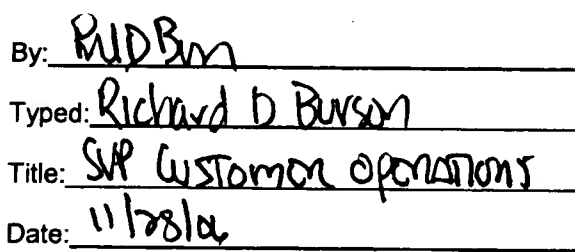 By:
Typed: Richard D Burson
Title: SVP Customer Operations
Date: 11/28/06